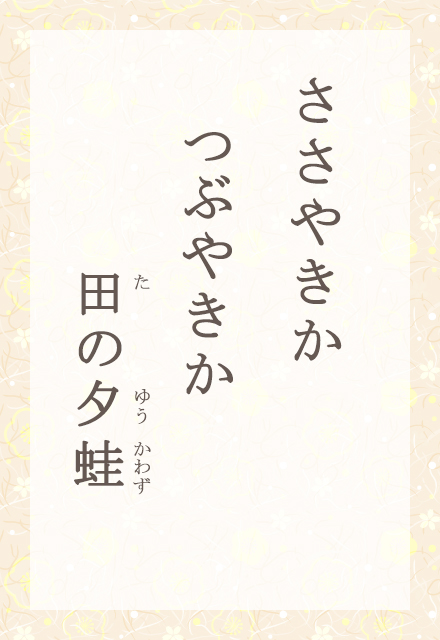 ささやきか
つぶやきか
田の夕蛙
た ゆう かわず